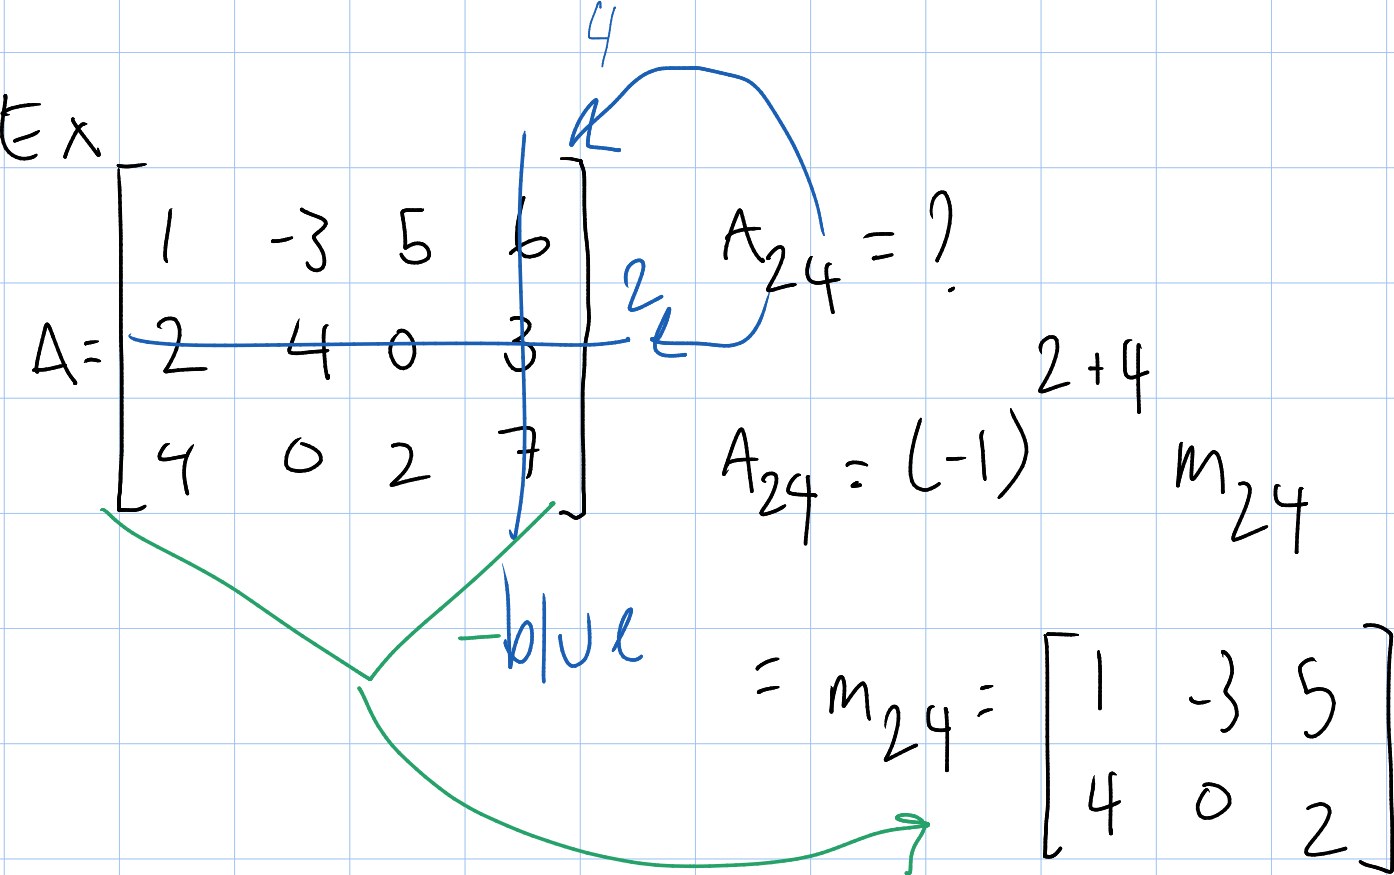 4
Ex
1 -3 5 6
A= 2 4 0 3
4 0 2 7
2
A24 = ?
A24 = (-1)^2+4 m24
-blue
= m24 = 1 -3 5
4 0 2